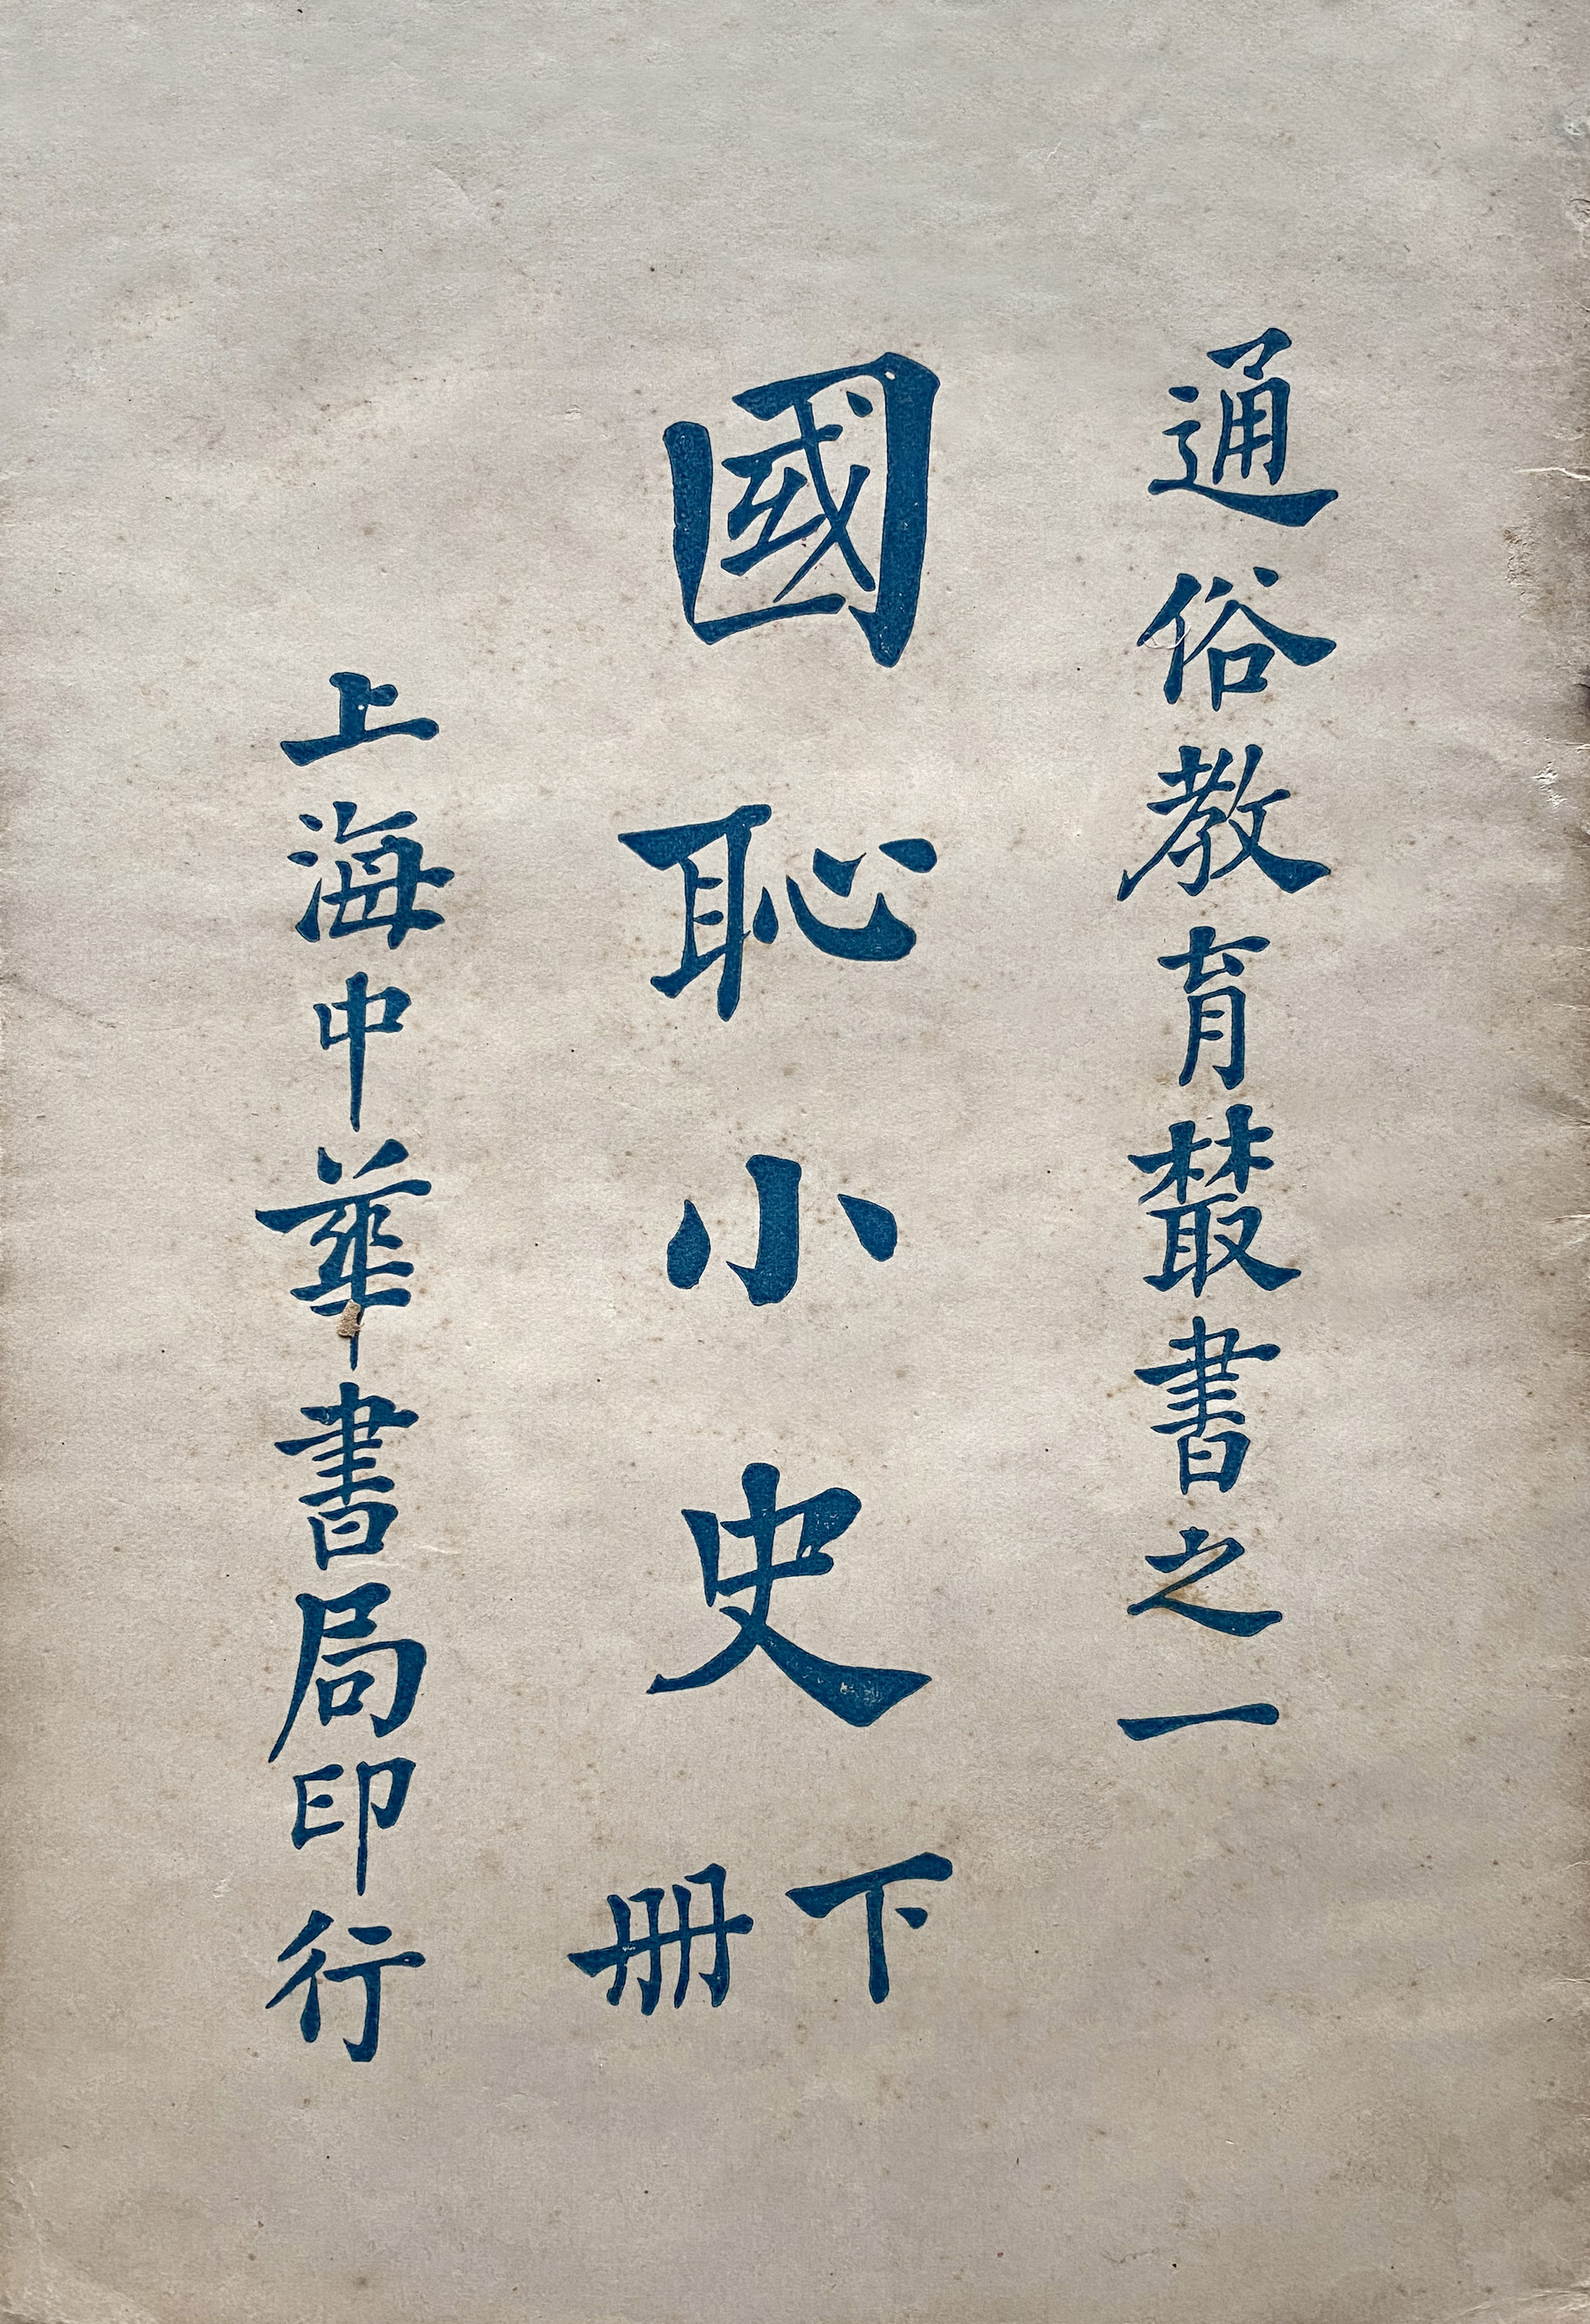 通俗教育叢書之一
國恥小史
下冊
上海中華書局印行